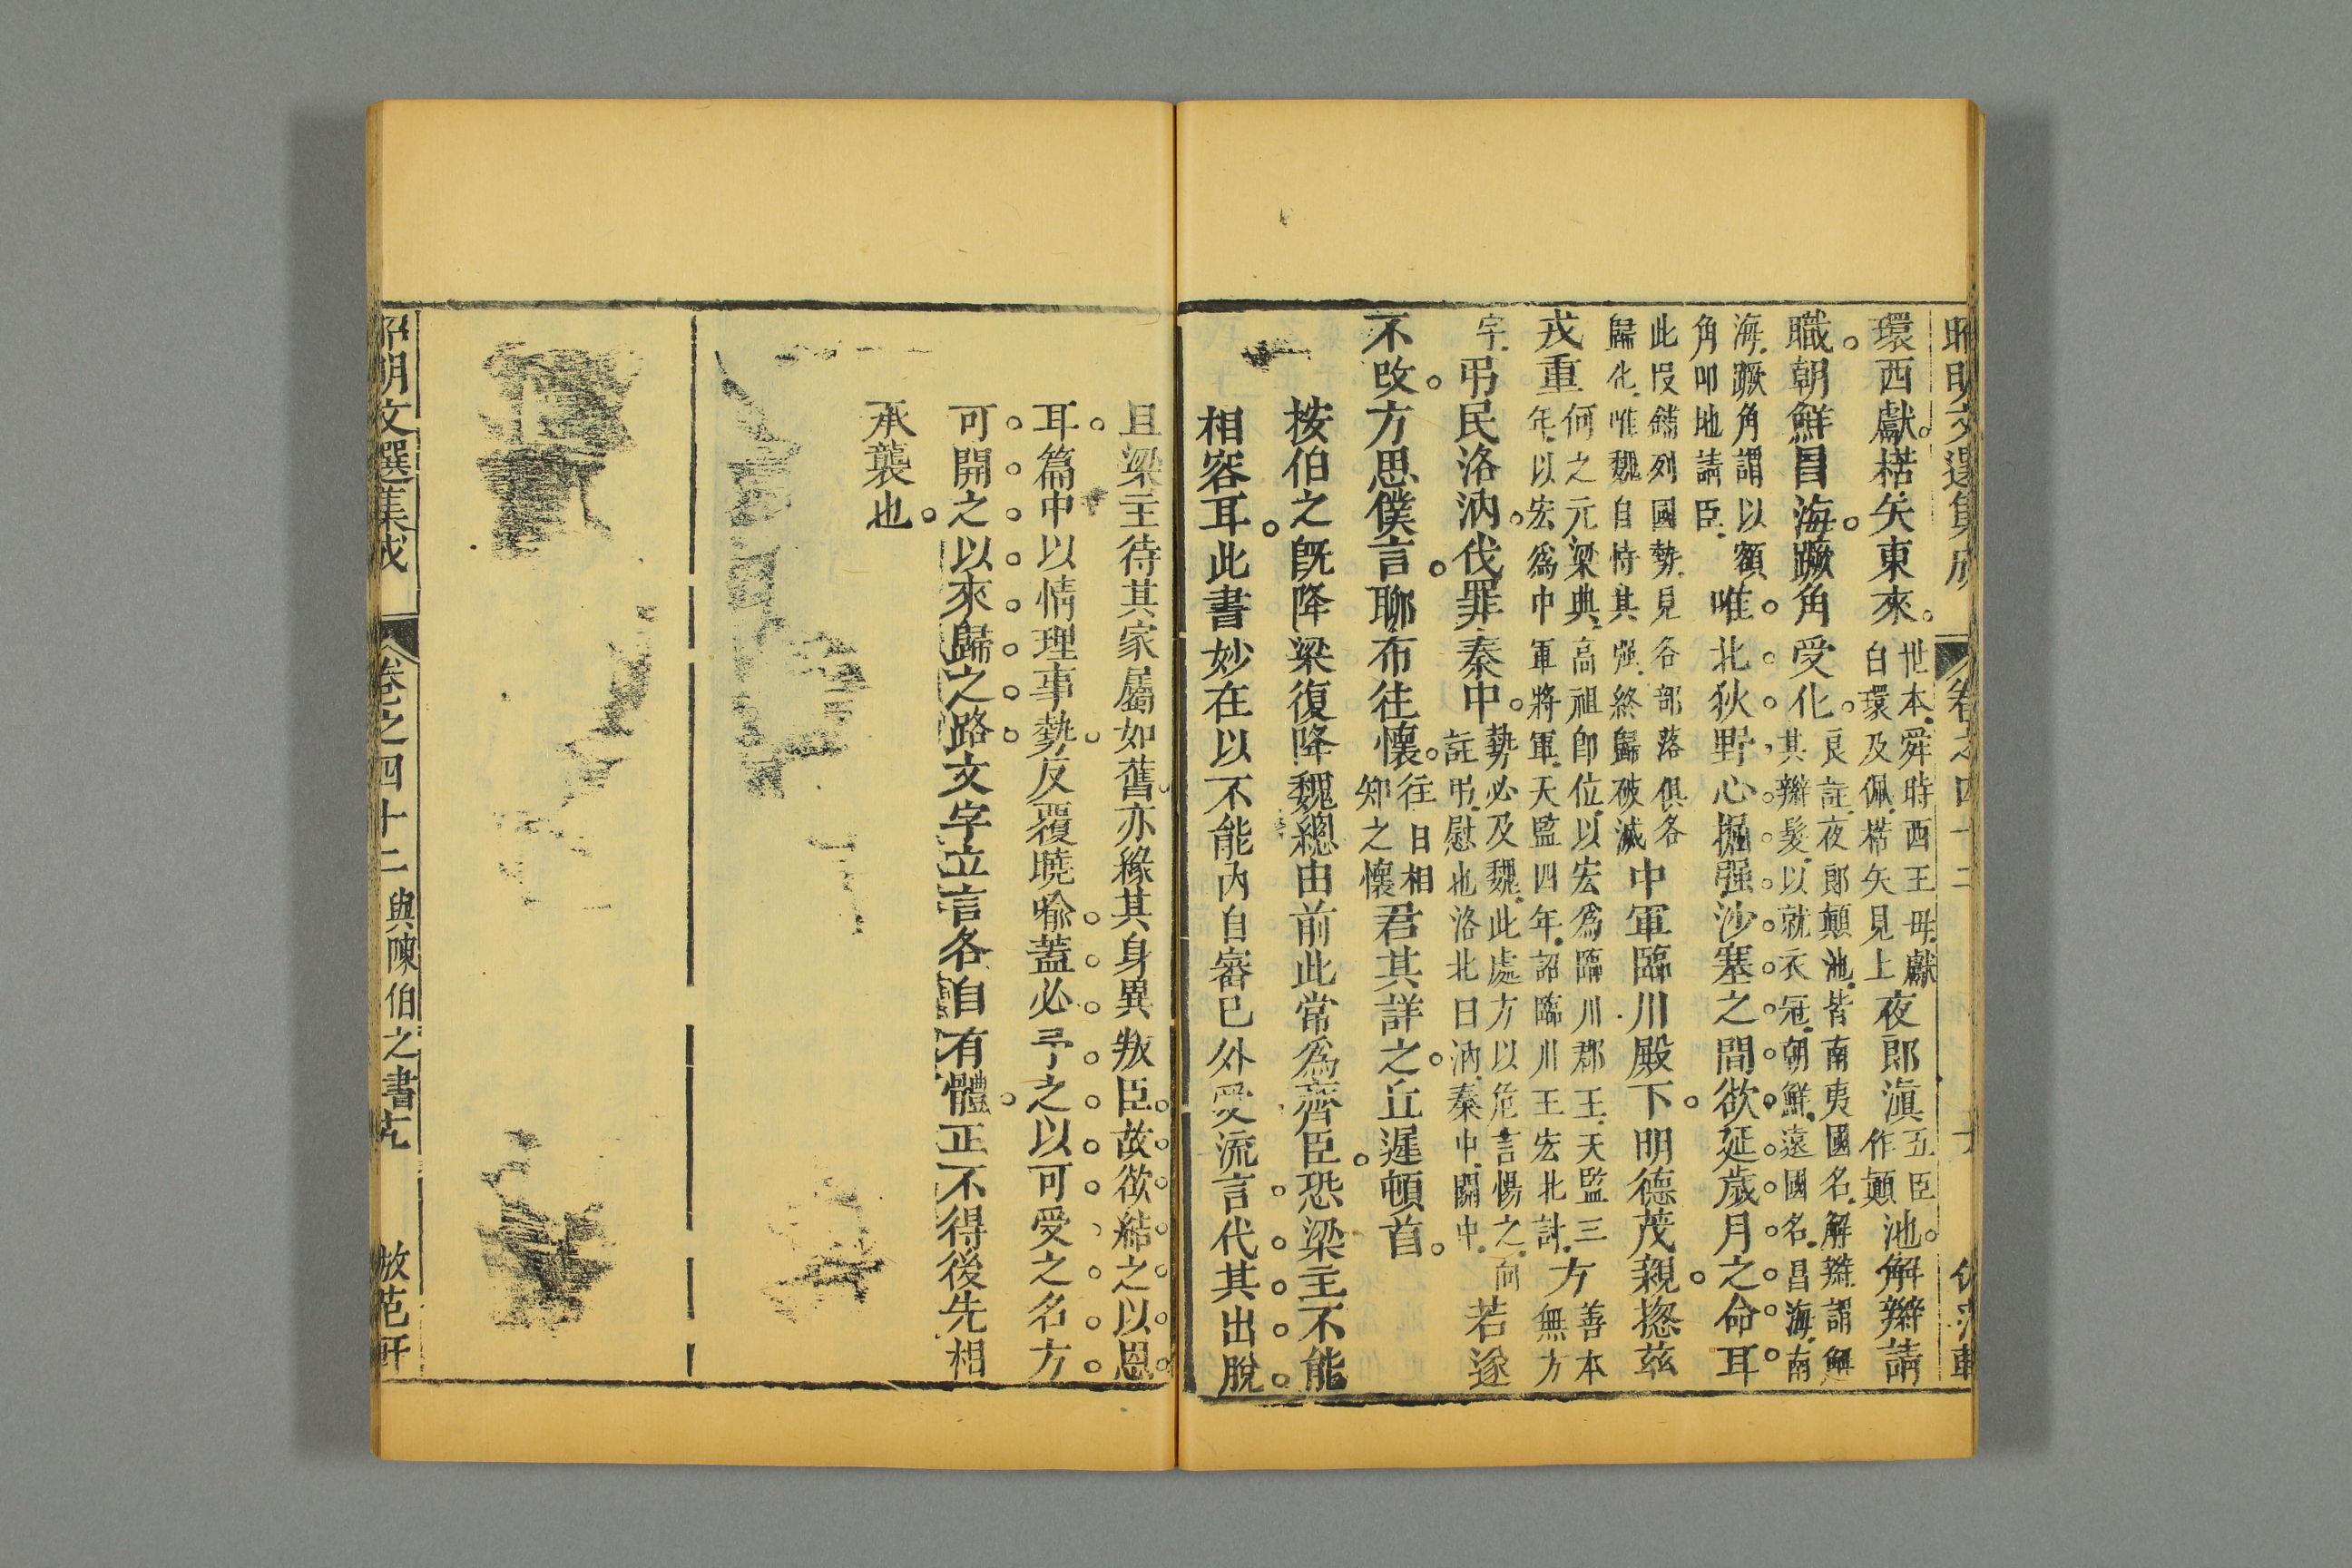 環西獻楛矢東來世本舜時西王毋獻白環及佩楛矢見上夜郎滇五臣作顚池解辮請
職朝鮮昌海蹶角受化良註夜郎顚池皆南夷國名解辮謂解其辮髮以就衣冠朝鮮遠國名昌海南
海蹶角謂以額角叩地請臣唯北狄野心掘强沙塞之間欲延歲月之命耳
此段鋪列國勢見各部落俱各歸化唯魏自恃其强終歸破滅中軍臨川殿下明德茂親揔茲
戎重何之元梁典高祖卽位以宏爲臨川郡王天監三年以宏爲中軍將軍天監四年詔臨川王宏北討方善本無方
字弔民洛汭伐罪秦中勢必及魏此處方以危言惕之註弔慰也洛北曰汭秦中關中向若遂
不攺方思僕言聊布往懷往日相知之懷君其詳之丘遲頓首
按伯之旣降梁復降魏總由前此常爲齊臣恐梁主不能
相容耳此書妙在以不能內自審己外受流言代其出脫
且梁主待其家屬如舊亦緣其身異叛臣故欲結之以恩
耳篇中以情理事勢反覆曉喻蓋必予之以可受之名方
可開之以來歸之路文字立言各自有體正不得後先相
承襲也
昭明文選集成 卷之四十二 與陳伯之書 倣范軒